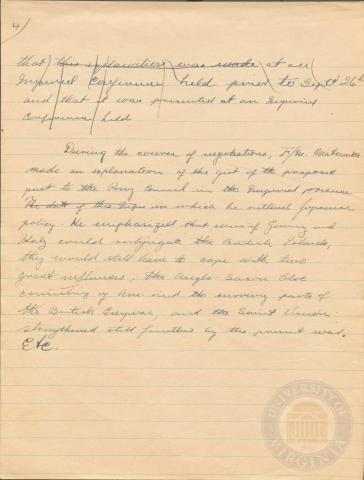 4/
that this explanation was made at an
Imperial Conference held prior to Sept. 26th
and that it was presented at an Imperial
Conference held
During the course of negotiations, F/M. Matsuoka
made an explanation of the gist of the proposed
pact to the Privy Council in the Imperial presence.
The date of this in which he outlined Japanese
policy. He emphasized that even if Germany and
Italy could subjugate the British Islands,
they would still have to cope with two
great influences, the Anglo-Saxon Bloc
consisting of Am. and the surviving parts of
the British Empire, and the Soviet Union
strengthened still further by the present war.
Etc.
UNIVERSITY OF VIRGINIA